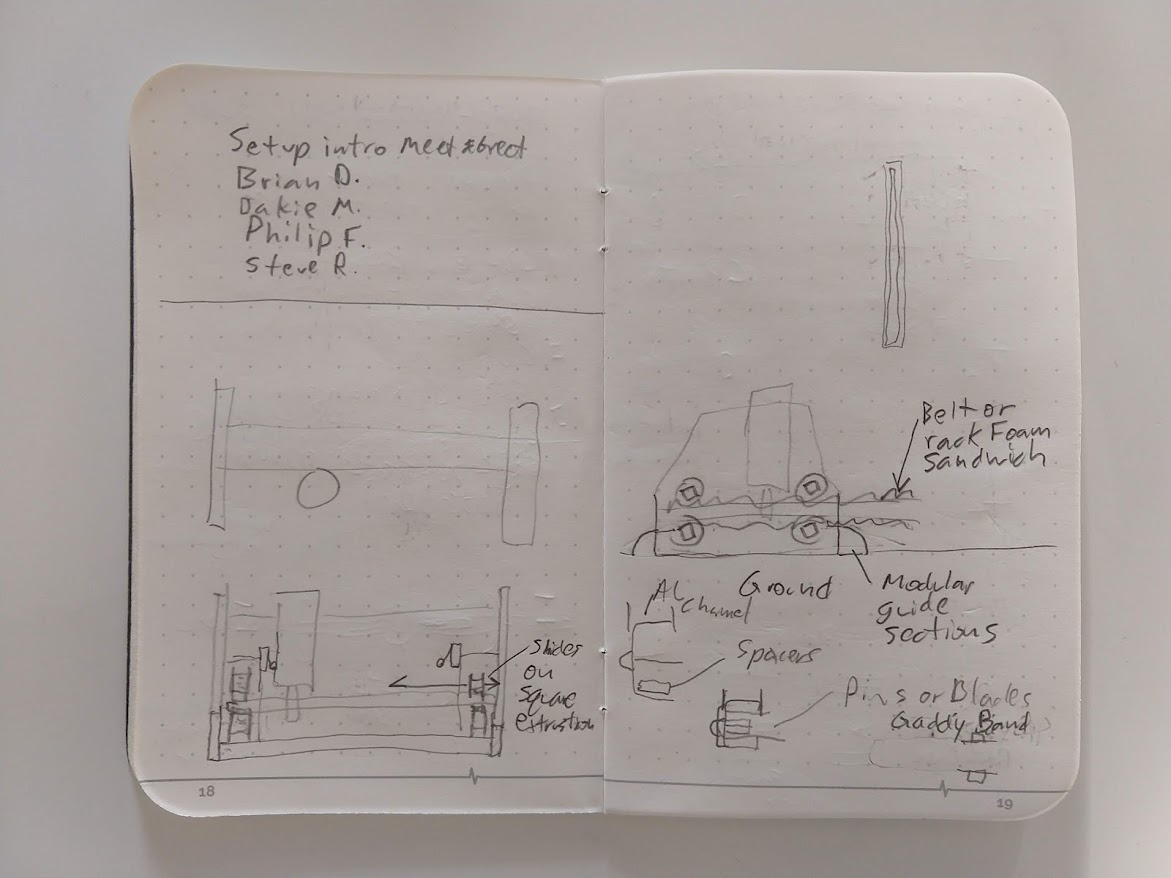 Setup intro Meet & Greet
Brian D.
Jakie M.
Philip F.
Steve R.
Slides
on
Square
extrustion
18
Belt or
rack Foam
Sandwich
Ground
Modular
guide
sections
AL
Channel
Spacers
Pins or Blades
Gaddy Band
19